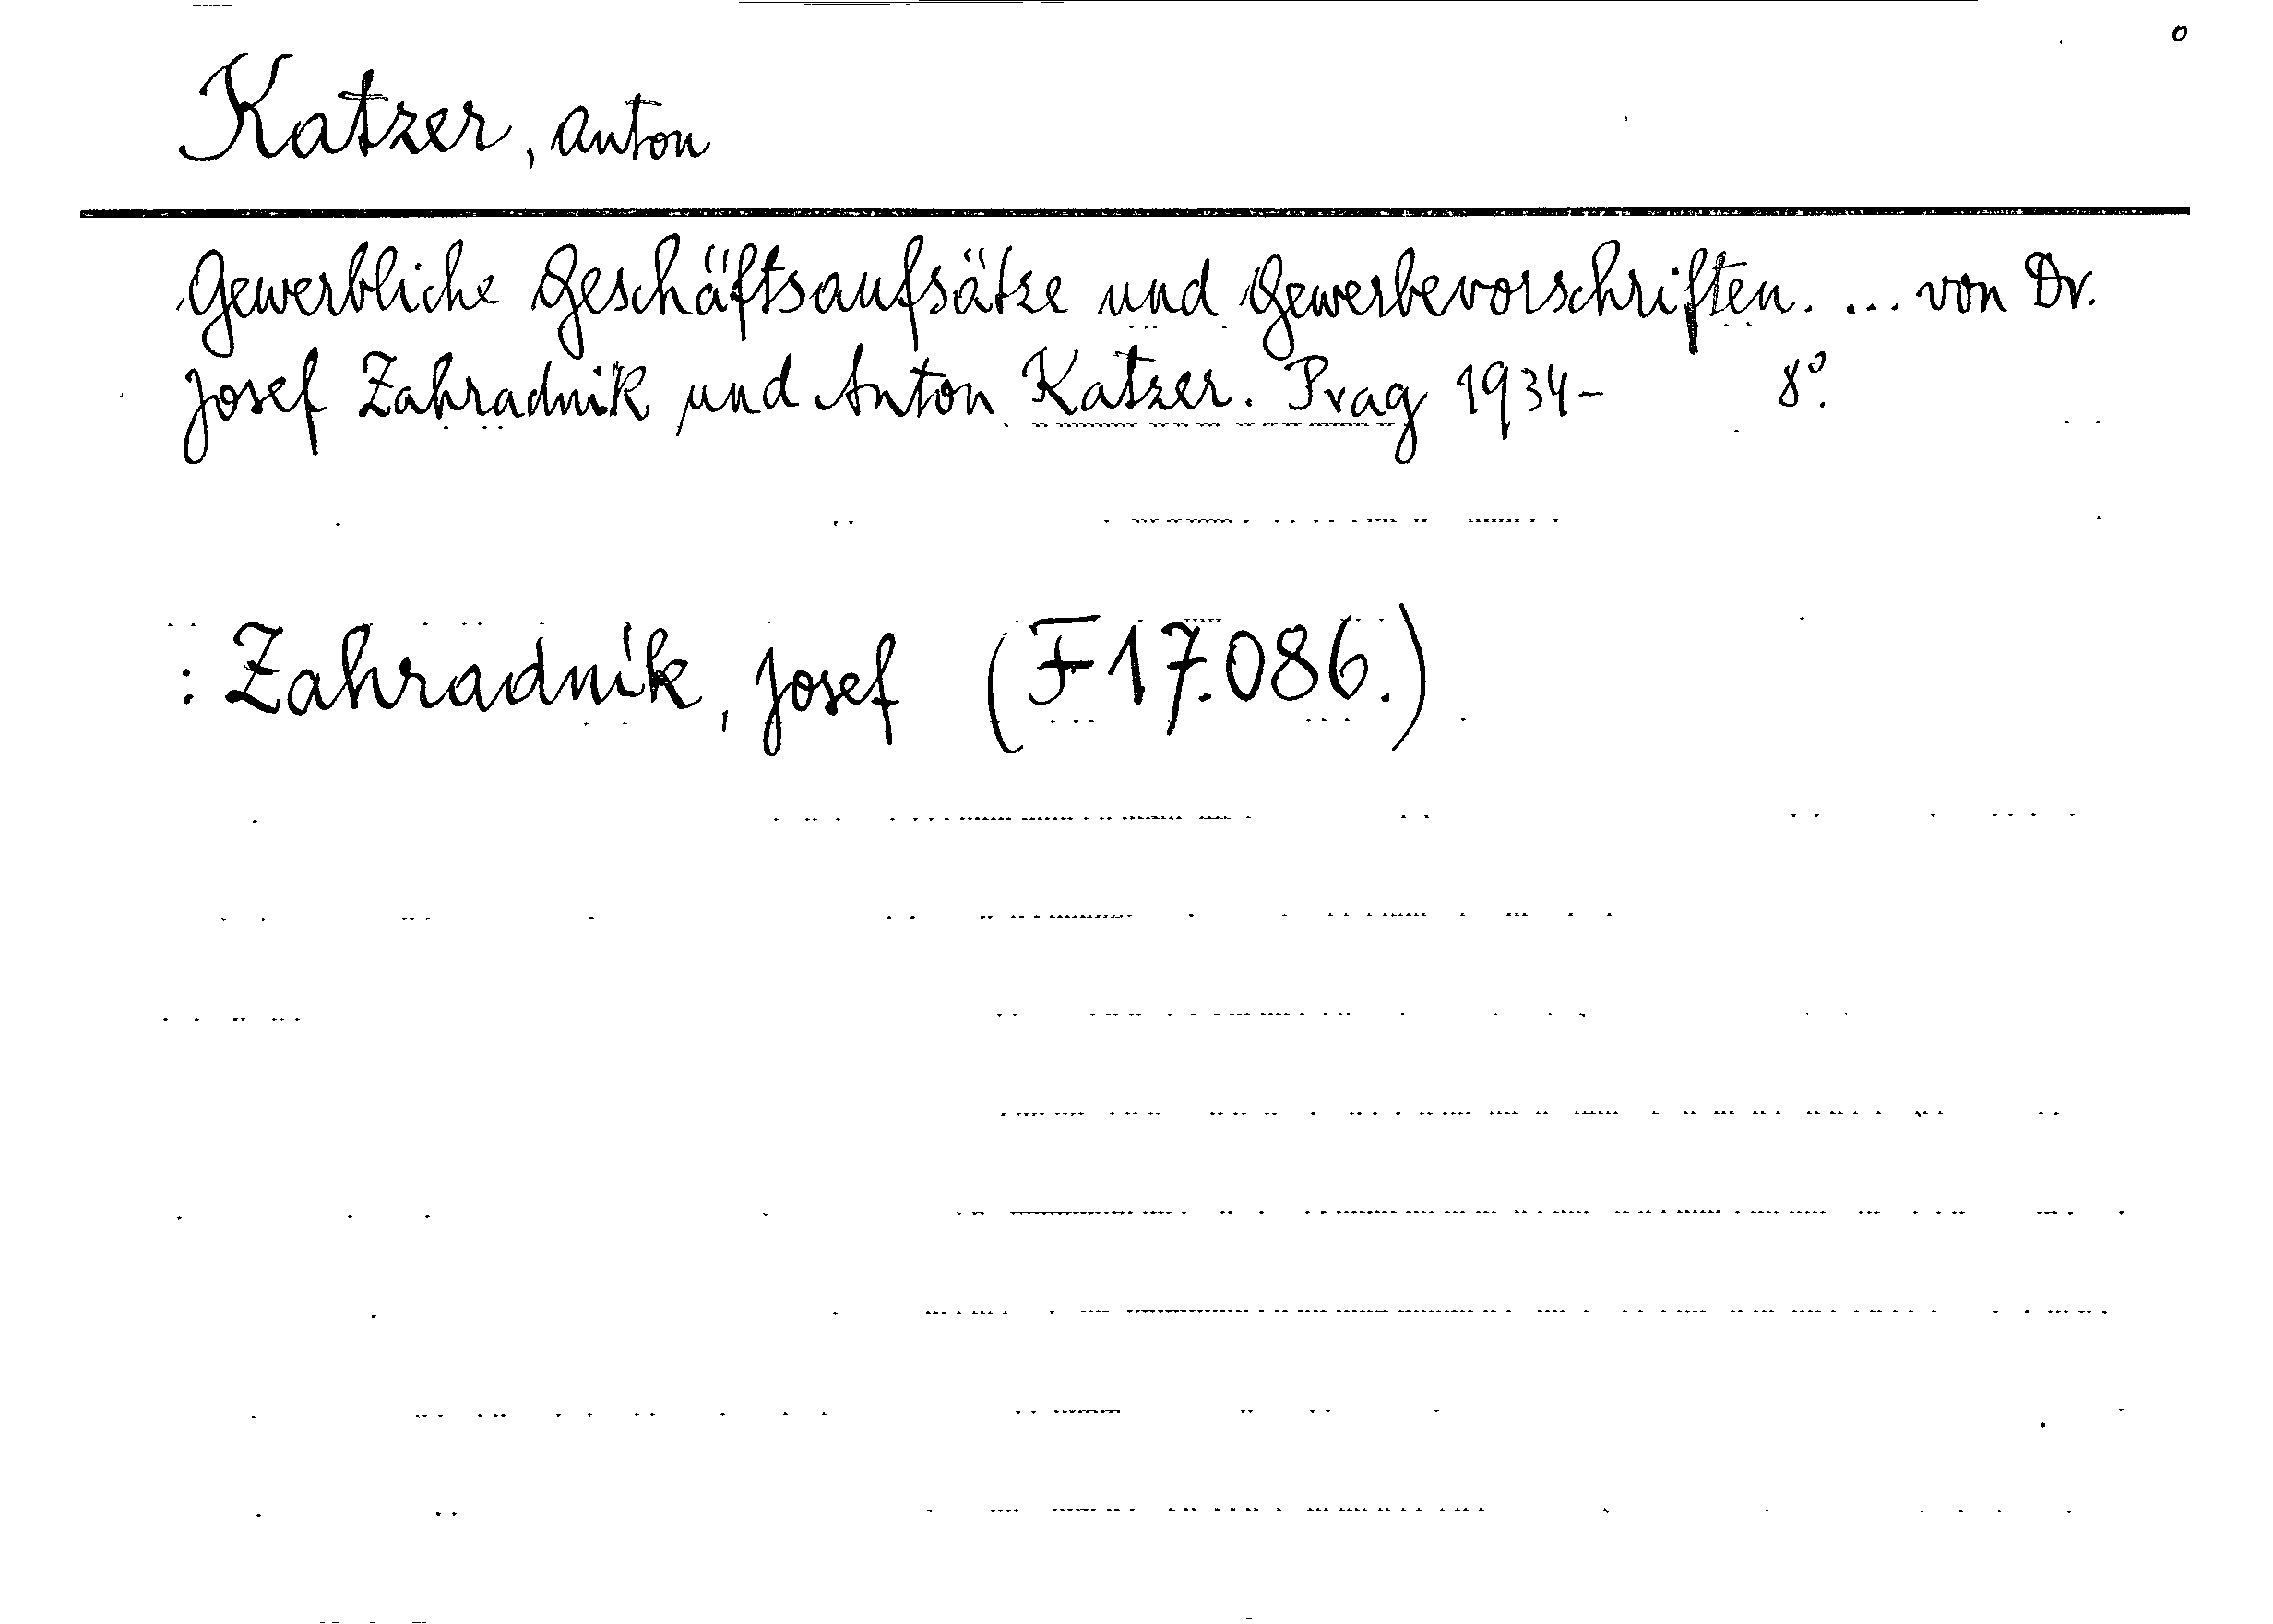 o
Katzer, Anton
Gewerbliche Geschäftsaufsätze und Gewerbevorschriften. ... von Dr.
Josef Zahradnik und Anton Katzer. Prag 1934- 8°.
: Zahradnik, Josef (F 17.086.)